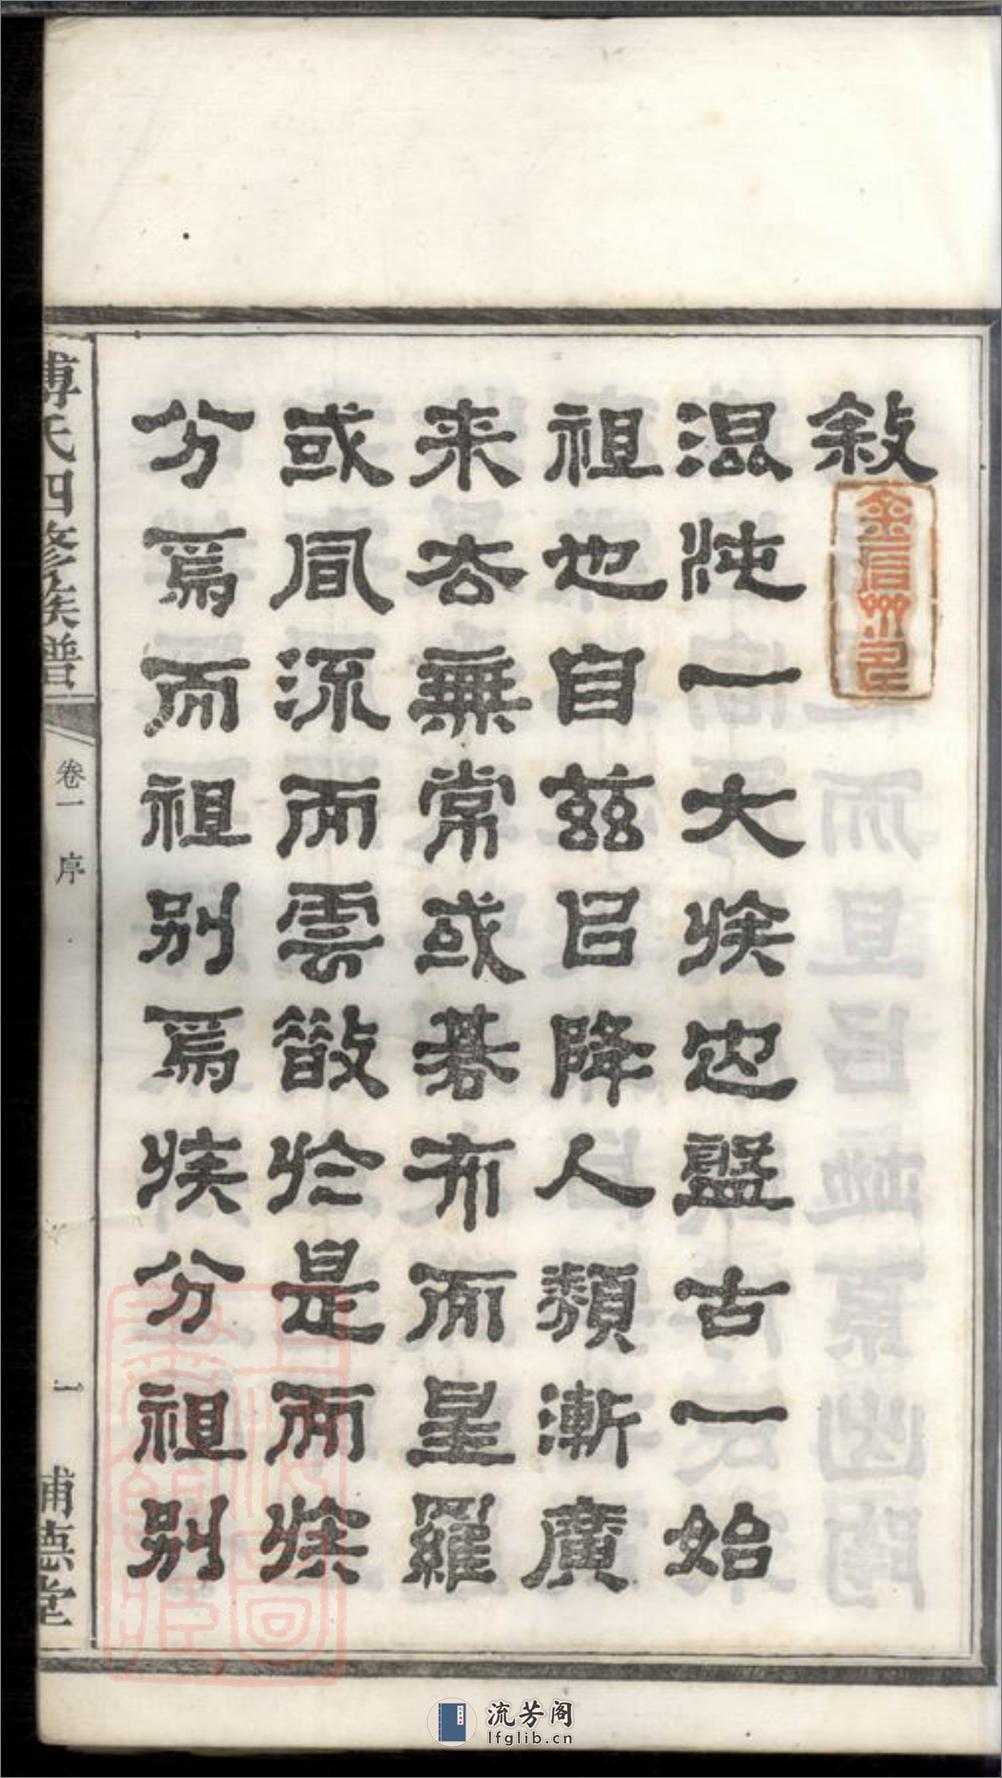 敘
混沌一大族也盤古一始
祖也自茲㠯降人類漸廣
来去無常或棊布而星羅
或同流而雲散於是而族
分焉而祖别焉族分祖别
傅氏四修族譜
卷一 序
一
流芳阁
lfglib.cn